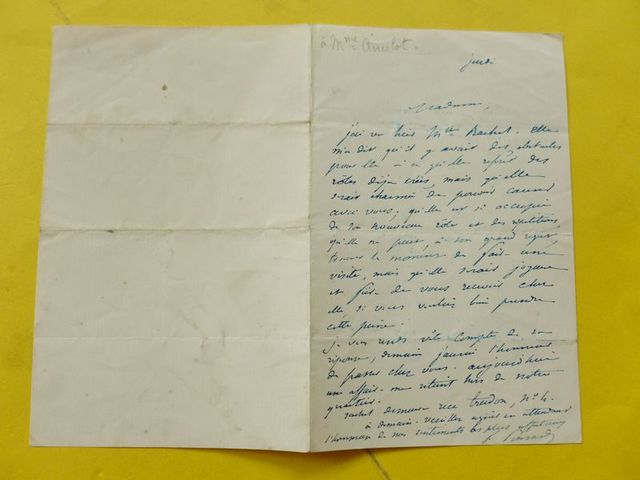 à Mme Ancelot.
jeudi
Madame,
j'ai vu hier Mlle Rachel. Elle
m'a dit qu'il y avait des obstacles
pour elle à ce qu'elle reprit des
rôles déjà créés, mais qu'elle
serait charmée de pouvoir causer
avec vous. qu'elle est si occupée
de son nouveau rôle et des répétitions
qu'elle ne peut, à son grand regret,
trouver le moment de faire une
visite, mais qu'elle serait joyeuse
et fière de vous recevoir chez
elle si vous vouliez bien prendre
cette peine.
Je vous rends vite compte de sa
réponse, demain j'aurai l'honneur
de passer chez vous. aujourd'hui
une affaire me retient hors de notre
quartier.
rachel demeure rue trudon, no 4.
à demain. veuillez agréer en attendant
l'hommage de mes sentiments les plus affectueux